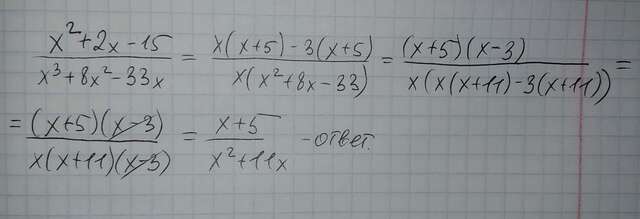 (x²+2x-15)/(x³+8x²-33x) = (x(x+5)-3(x+5))/(x(x²+8x-33)) = ((x+5)(x-3))/(x(x(x+11)-3(x+11))) =
= ((x+5)(x-3))/(x(x+11)(x-3)) = (x+5)/(x²+11x) - ответ.